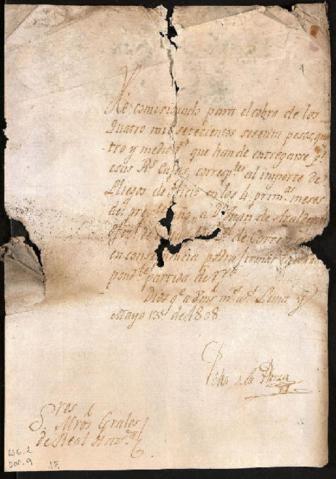 He comisionado para el cobro de los
Quatro mil setecientos sesenta pesos, qua
tro y medio r.^s que han de entregarse p.^r
esas R.^s Caxas, correspond.^tes al importe de
Pliegos de Oficio en los 4 prim.^os meses
del pres.^te año, a D.ⁿ Juan de
de Correos
en consequencia podrá firmar
pond.^te partida de
Dios g.^e a Vms m.^s a.^s Lima y
Mayo 13 de 1808
Felix de la Rosa
S.^res
Mros Grales
de Real Haz.^da
LEG. 2
DOC. 9